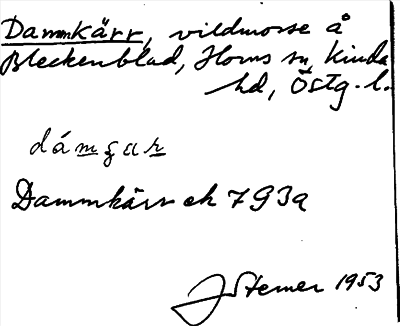 Dammkärr, vildmosse å
Bleckenblad, Horns sn, Kinda
hd, Östg. l.
dámgar
Dammkärr ek 793a
J Sterner 1953